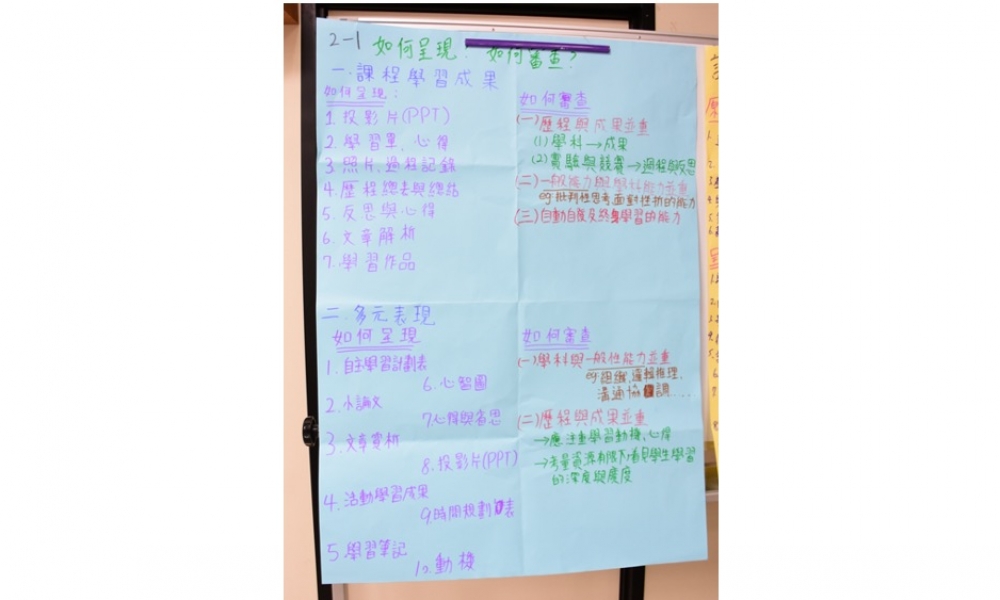 2-1 如何呈現? 如何審查?
一.課程學習成果
如何呈現:
1.投影片(PPT)
2.學習單、心得
3.照片、過程記錄
4.歷程總表與總結
5.反思與心得
6.文章解析
7.學習作品
如何審查
(一)歷程與成果並重
(1)學科→成果
(2)實驗與競賽→過程與反思
(二)一般能力與學科能力並重
eg批判性思考、面對挫折的能力
(三)自動自發及終身學習的能力
二.多元表現
如何呈現
1.自主學習計劃表
2.小論文
3.文章賞析
4.活動學習成果
5.學習筆記
6.心智圖
7.心得與省思
8.投影片(PPT)
9.時間規劃表
10.動機
如何審查
(一)學科與一般性能力並重
eg.組織、邏輯推理、
溝通協調....
(二)歷程與成果並重
→應注重學習動機、心得
→考量資源有限下看見學生學習
的深度與廣度